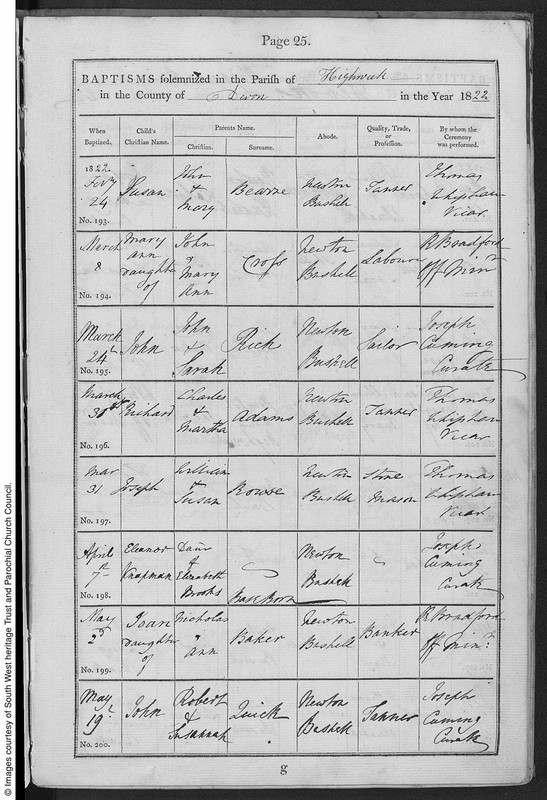 Page 25.
BAPTISMS solemnized in the Parish of Highweek
in the County of Devon in the Year 1822
When Baptized. Child's Christian Name. Parents Name. Christian. Surname. Abode. Quality, Trade, or Profession. By whom the Ceremony was performed.
1822 Feby 24 No. 193. Susan John & Mary Bearne Newton Bushell Tanner Thomas Whipham Vicar
March 8 No. 194. Mary Ann Daughter of John & Mary Ann Cross Newton Bushell Labour R Bradford Off Minr
March 24th No. 195. John John & Sarah Rich Newton Bushell Sailor Joseph Cuming Curate
March No. 196. Richard Charles & Martha Adams Newton Bushell Tanner Thomas Whipham Vicar
Mar 31 No. 197. Joseph William & Susan Rowse Newton Bushell Stone Mason Thomas Whipham Vicar
April 7th No. 198. Eleanor Knapman & Elizabeth Brooks Base Born Newton Bushell Joseph Cuming Curate
May 2d No. 199. Daughter of Nicholas " Ann Baker Newton Bushell Banker R Bradford Off Minr
May 19th No. 200. John Robert & Susannah Quick Newton Bushell Tanner Joseph Cuming Curate
g
© Images courtesy of South West heritage Trust and Parochial Church Council.